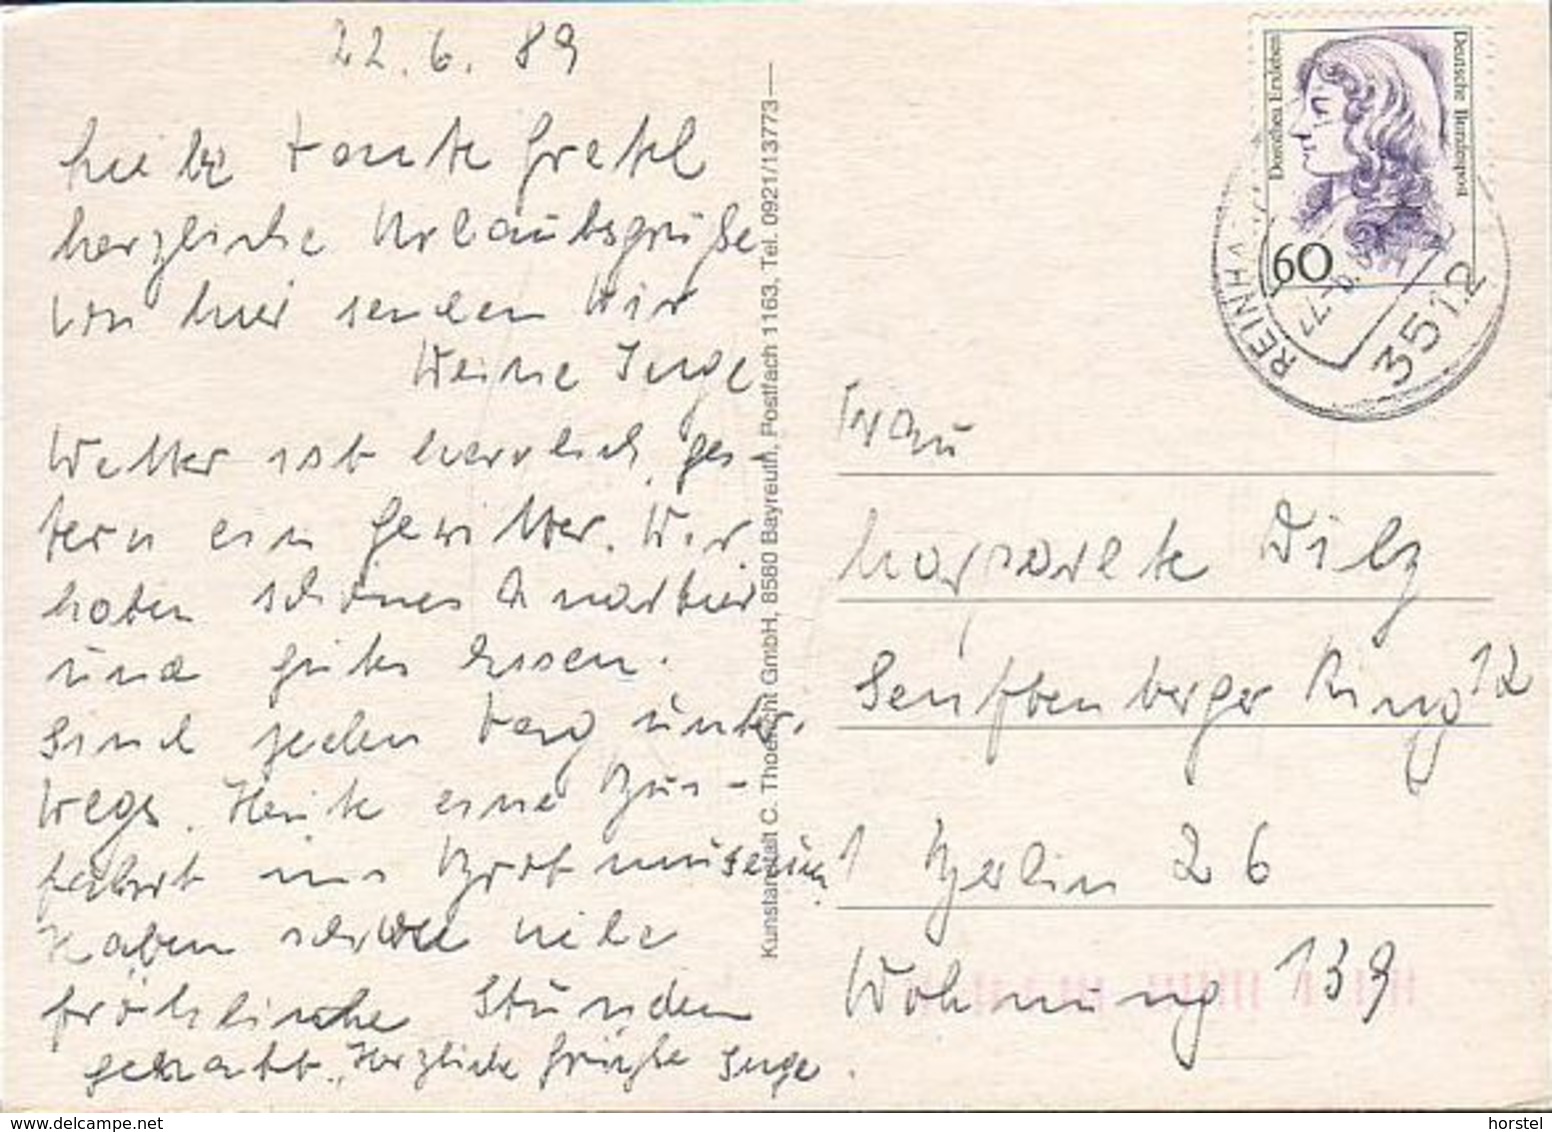 22.6.89
Liebe Tante Gretel
herzliche Urlaubsgrüße
von hier senden Dir
Inge
Wetter ist herrlich, ges-
tern ein Gewitter. Wir
haben schönes Quartier
und gutes Essen.
Sind jeden Tag unter-
wegs. Heute eine Bus-
fahrt ins Brotmuseum
Haben schon viele
fröhliche Stunden
gehabt. Herzliche Grüße Inge.
Kunstanstalt C. Thoericht GmbH, 8580 Bayreuth, Postfach 1163, Tel. 0921/13773
Dorothea Erxleben
Deutsche Bundespost
60
REINH
3512
Frau
Margarete Dilz
Senftenberger Ring 12
1 Berlin 26
Wohnung 139
horstel
www.delcampe.net